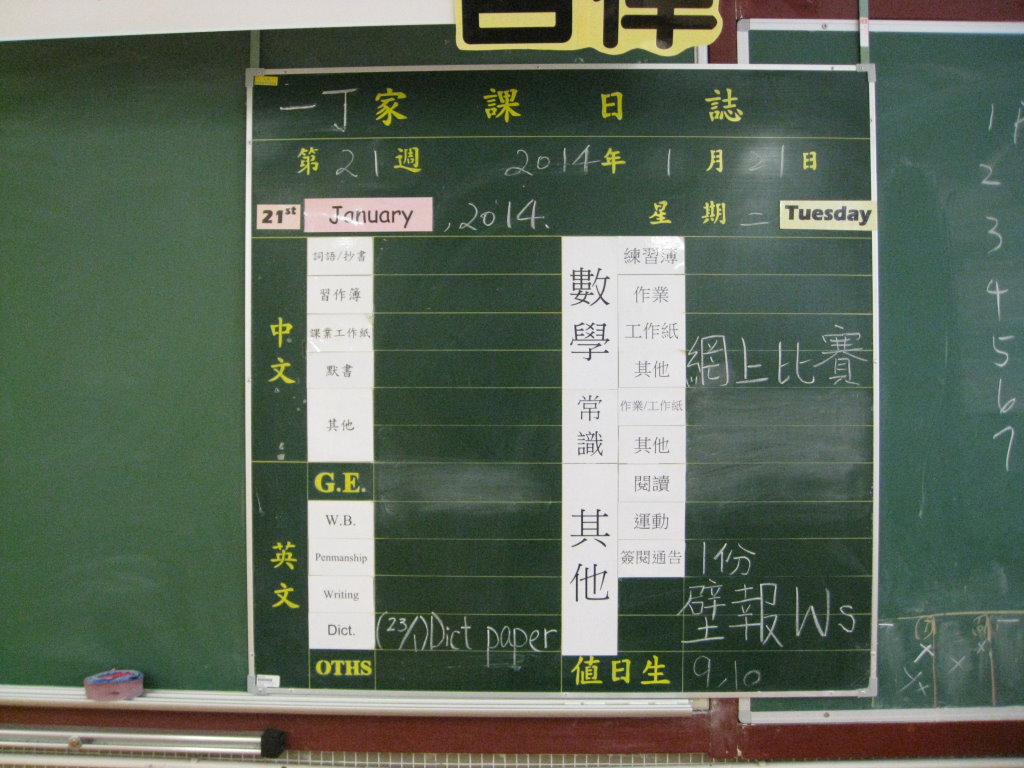 一丁家課日誌
第21週 2014年1月21日
21st January, 2014. 星期二 Tuesday
中文
詞語/抄書
習作簿
課業工作紙
默書
其他
英文
G.E.
W.B.
Penmanship
Writing
Dict. (23/1)Dict paper
OTHS
數學
練習簿
作業
工作紙
其他 網上比賽
常識
作業/工作紙
其他
其他
閱讀
運動
簽閱通告 1份
壁報 Ws
值日生 9,10
1
2
3
4
5
6
7